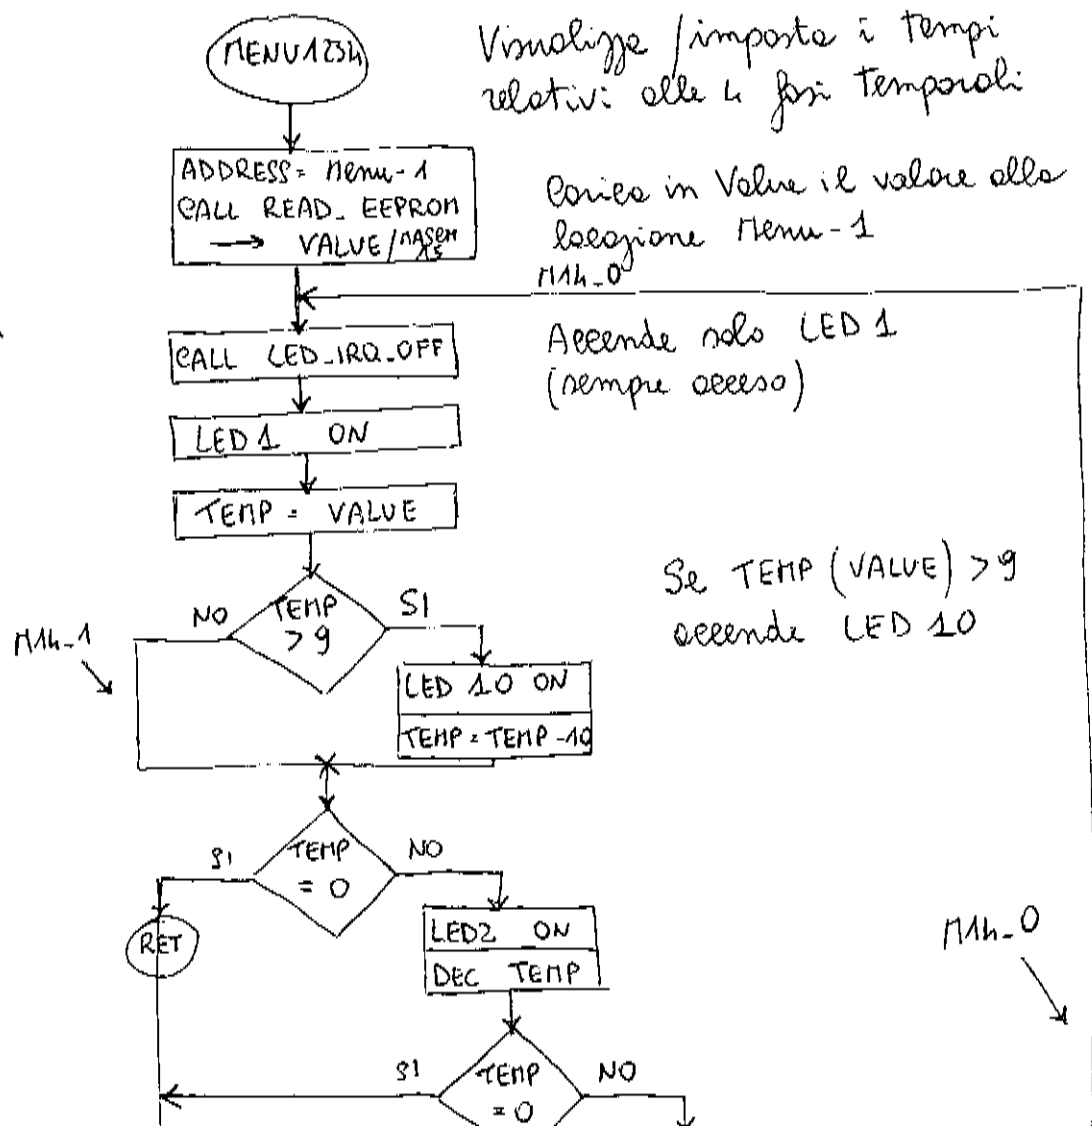 MENU1234
Visualizza / imposta i tempi
relativi alle 4 fasi temporali
ADDRESS = Menu-1
CALL READ_EEPROM
→ VALUE /
Carica in Value il valore alla
locazione Menu-1
M14_0
CALL LED_IRQ_OFF
Accende solo LED 1
(sempre acceso)
LED 1 ON
TEMP = VALUE
Se TEMP (VALUE) > 9
accende LED 10
NO
TEMP
> 9
SI
M14_1
LED 10 ON
TEMP = TEMP -10
SI
TEMP
= 0
NO
RET
LED2 ON
DEC TEMP
M14_0
SI
TEMP
= 0
NO